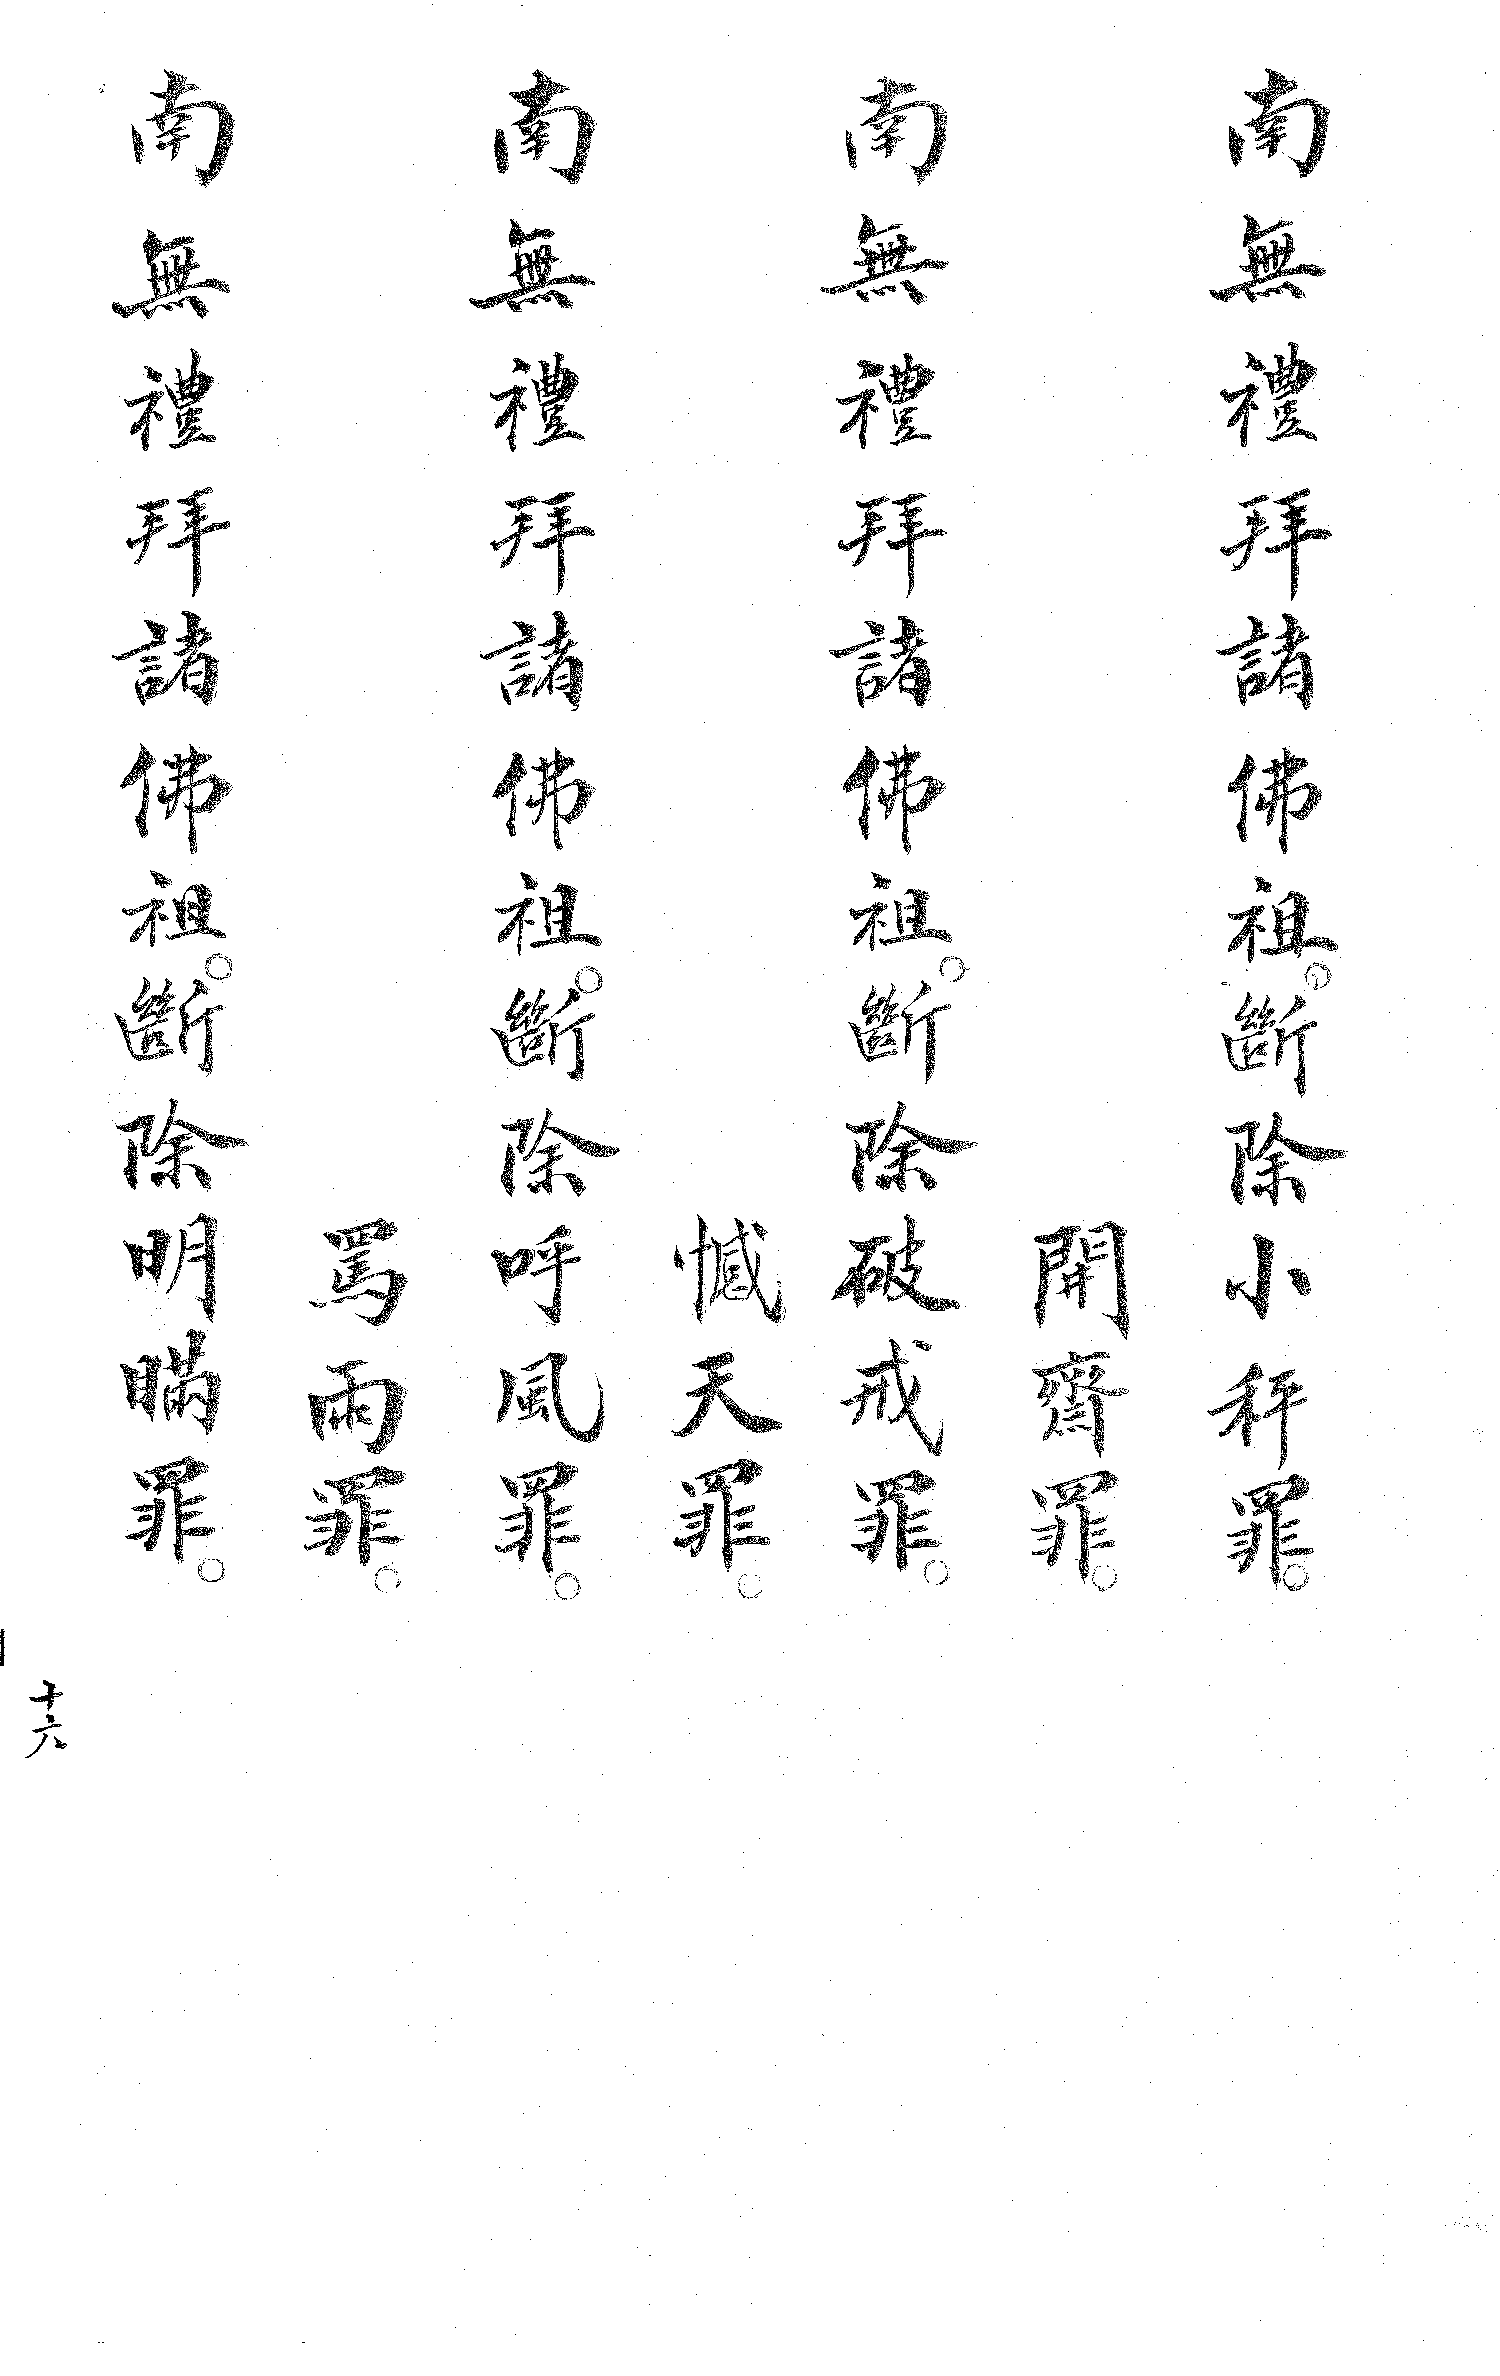 南無禮拜諸佛祖。斷除小秤罪。
開齋罪。
南無禮拜諸佛祖。斷除破戒罪。
憾天罪。
南無禮拜諸佛祖。斷除呼風罪。
罵雨罪。
南無禮拜諸佛祖。斷除明瞞罪。
十六